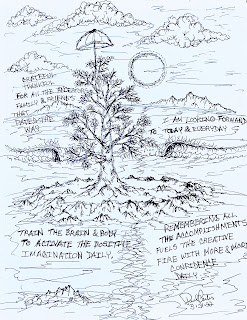 GRATEFUL
FOR ALL THE
FAMILY & FRIENDS
THEY
PAVED THE
WAY.
I AM LOOKING FORWARD
TO TODAY & EVERYDAY
TRAIN THE BRAIN & BODY
TO ACTIVATE THE POSITIVE
IMAGINATION DAILY.
REMEMBERING ALL
THE ACCOMPLISHMENTS
FUELS THE CREATIVE
FIRE WITH MORE & MORE
CONFIDENCE
DAILY.